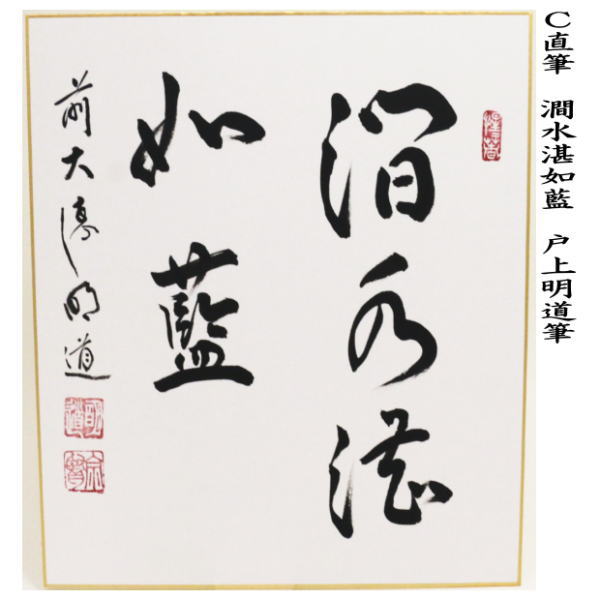 C直筆 澗水湛如藍 戸上明道筆
澗水湛
如藍
前大徳明道